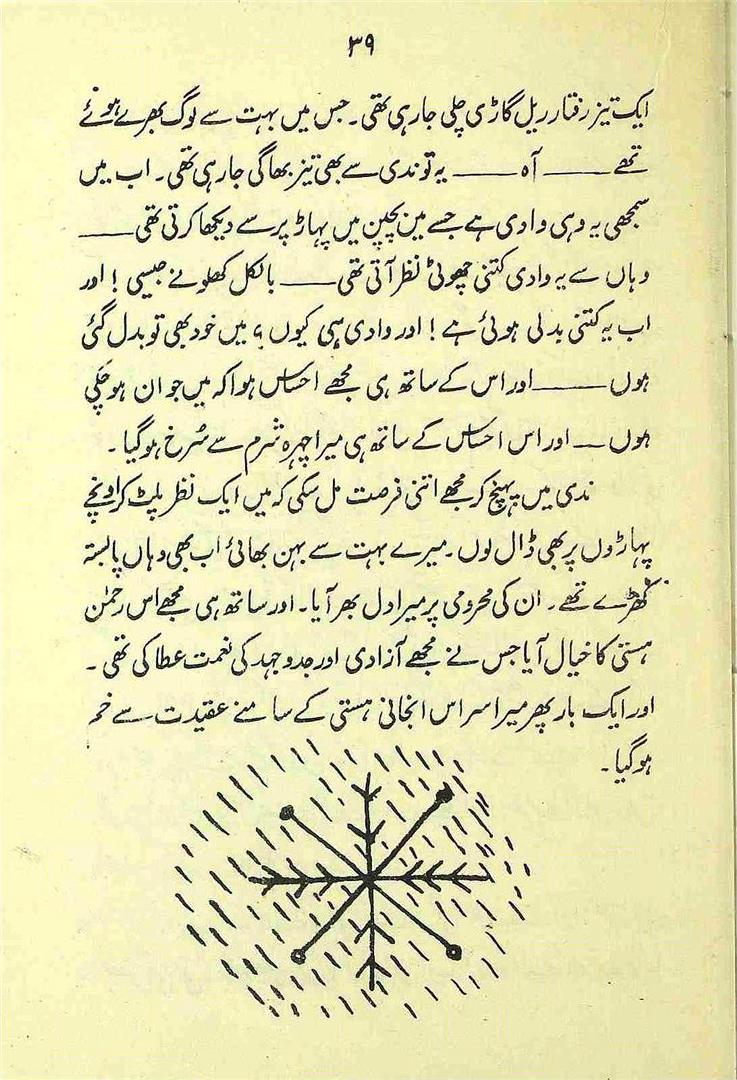 ۳۹
ایک تیز رفتار ریل گاڑی چلی جارہی تھی۔ جس میں بہت سے لوگ بھرے ہوئے
تھے —— آہ —— یہ تو ندی سے بھی تیز بھاگی جارہی تھی۔ اب میں
سمجھی یہ وہی وادی ہے جسے میں بچپن میں پہاڑ پر سے دیکھا کرتی تھی ——
وہاں سے یہ وادی کتنی چھوٹی نظر آتی تھی —— بالکل کھلونے جیسی! اور
اب یہ کتنی بدلی ہوئی ہے! اور وادی ہی کیوں؟ میں خود بھی تو بدل گئی
ہوں —— اور اس کے ساتھ ہی مجھے احساس ہوا کہ میں جوان ہو چکی
ہوں — اور اس احساس کے ساتھ ہی میرا چہرہ شرم سے سُرخ ہوگیا۔
ندی میں پہنچ کر مجھے اتنی فرصت مل سکی کہ میں ایک نظر پلٹ کر اونچے
پہاڑوں پر بھی ڈال لوں۔ میرے بہت سے بہن بھائی اب بھی وہاں پابستہ
کھڑے تھے۔ ان کی محرومی پر میرا دل بھر آیا۔ اور ساتھ ہی مجھے اس رحمٰن
ہستی کا خیال آیا جس نے مجھے آزادی اور جدوجہد کی نعمت عطا کی تھی۔
اور ایک بار پھر میرا سر اس انجانی ہستی کے سامنے عقیدت سے خم
ہوگیا۔